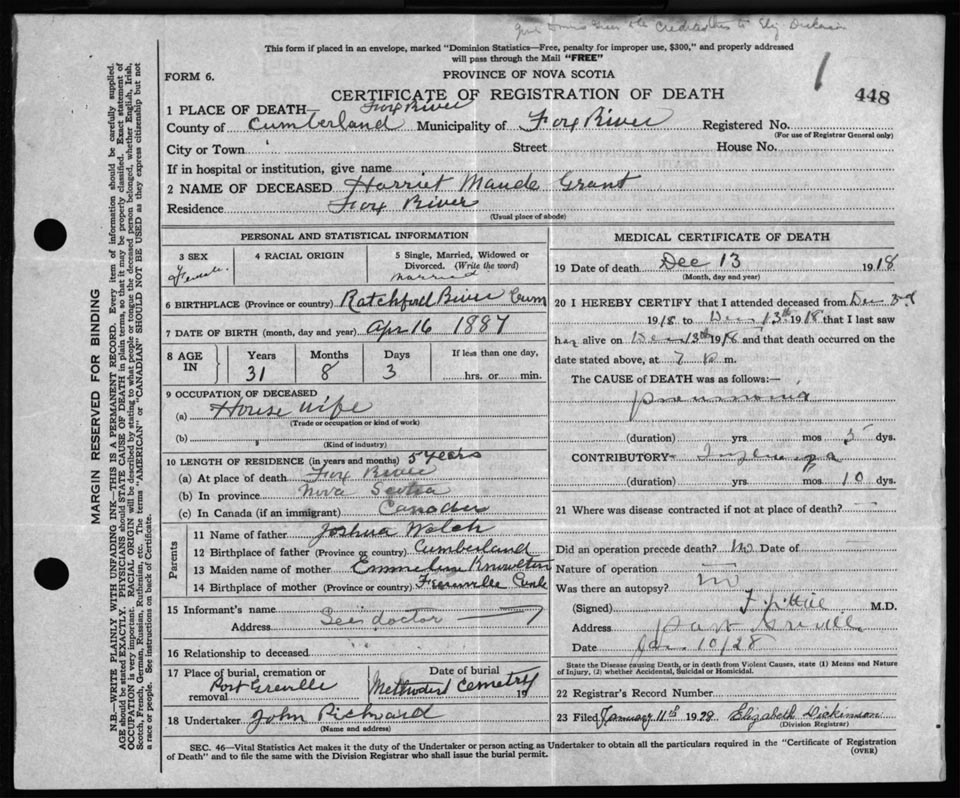 This form if placed in an envelope, marked "Dominion Statistics—Free, penalty for improper use, $300," and properly addressed
will pass through the Mail "FREE"
FORM 6.
PROVINCE OF NOVA SCOTIA
1
448
CERTIFICATE OF REGISTRATION OF DEATH
1 PLACE OF DEATH— Fox River
County of Cumberland Municipality of Fox River Registered No.
(For use of Registrar General only)
City or Town Street House No.
If in hospital or institution, give name
2 NAME OF DECEASED Harriet Maude Grant
Residence Fox River
(Usual place of abode)
PERSONAL AND STATISTICAL INFORMATION
3 SEX Female
4 RACIAL ORIGIN
5 Single, Married, Widowed or
Divorced. (Write the word)
married
6 BIRTHPLACE (Province or country) Ratchford River Cum
7 DATE OF BIRTH (month, day and year) Apr 16 1887
8 AGE IN
Years Months Days If less than one day,
31 8 3 hrs. or min.
9 OCCUPATION OF DECEASED
(a) House wife
(Trade or occupation or kind of work)
(b)
(Kind of industry)
10 LENGTH OF RESIDENCE (in years and months) 5 years
(a) At place of death Fox River
(b) In province Nova Scotia
(c) In Canada (if an immigrant) Canadian
Parents
11 Name of father Joshua Welch
12 Birthplace of father (Province or country) Cumberland
13 Maiden name of mother Emmeline Knowlton
14 Birthplace of mother (Province or country)
15 Informant's name
Address See doctor
16 Relationship to deceased
17 Place of burial, cremation or removal Port Greville
Date of burial
Methodist Cemetry 19
18 Undertaker John Rickward
(Name and address)
MEDICAL CERTIFICATE OF DEATH
19 Date of death Dec 13 1918
(Month, day and year)
20 I HEREBY CERTIFY that I attended deceased from Dec 3rd
1918 to Dec 13th 1918 that I last saw
her alive on Dec 13th 1918 and that death occurred on the
date stated above, at 7 P m.
The CAUSE of DEATH was as follows:—
pneumonia
(duration) yrs mos 5 dys.
CONTRIBUTORY— Influenza
(duration) yrs. mos 10 dys.
21 Where was disease contracted if not at place of death?
Did an operation precede death? no Date of
Nature of operation
Was there an autopsy? no
(Signed) M.D.
Address Port Greville
Date Jan 10/28
State the Disease causing Death, or in death from Violent Causes, state (1) Means and Nature
of Injury, (2) whether Accidental, Suicidal or Homicidal.
22 Registrar's Record Number
23 Filed January 11th 1928 Elizabeth Dickinson
(Division Registrar)
SEC. 46—Vital Statistics Act makes it the duty of the Undertaker or person acting as Undertaker to obtain all the particulars required in the "Certificate of Registration
of Death" and to file the same with the Division Registrar who shall issue the burial permit.
(OVER)
MARGIN RESERVED FOR BINDING
N.B.—WRITE PLAINLY WITH UNFADING INK—THIS IS A PERMANENT RECORD. Every item of information should be carefully supplied.
AGE should be stated EXACTLY. PHYSICIANS should STATE CAUSE OF DEATH in plain terms, so that it may be properly classified. Exact statement of
OCCUPATION is very important. RACIAL ORIGIN will be described by stating to what people or tongue the deceased person belonged, whether English, Irish,
Scotch, French, German, Russian, Ruthenian, etc. The terms "AMERICAN" or "CANADIAN" SHOULD NOT BE USED as they express citizenship but not
a race or people. See instructions on back of Certificate.